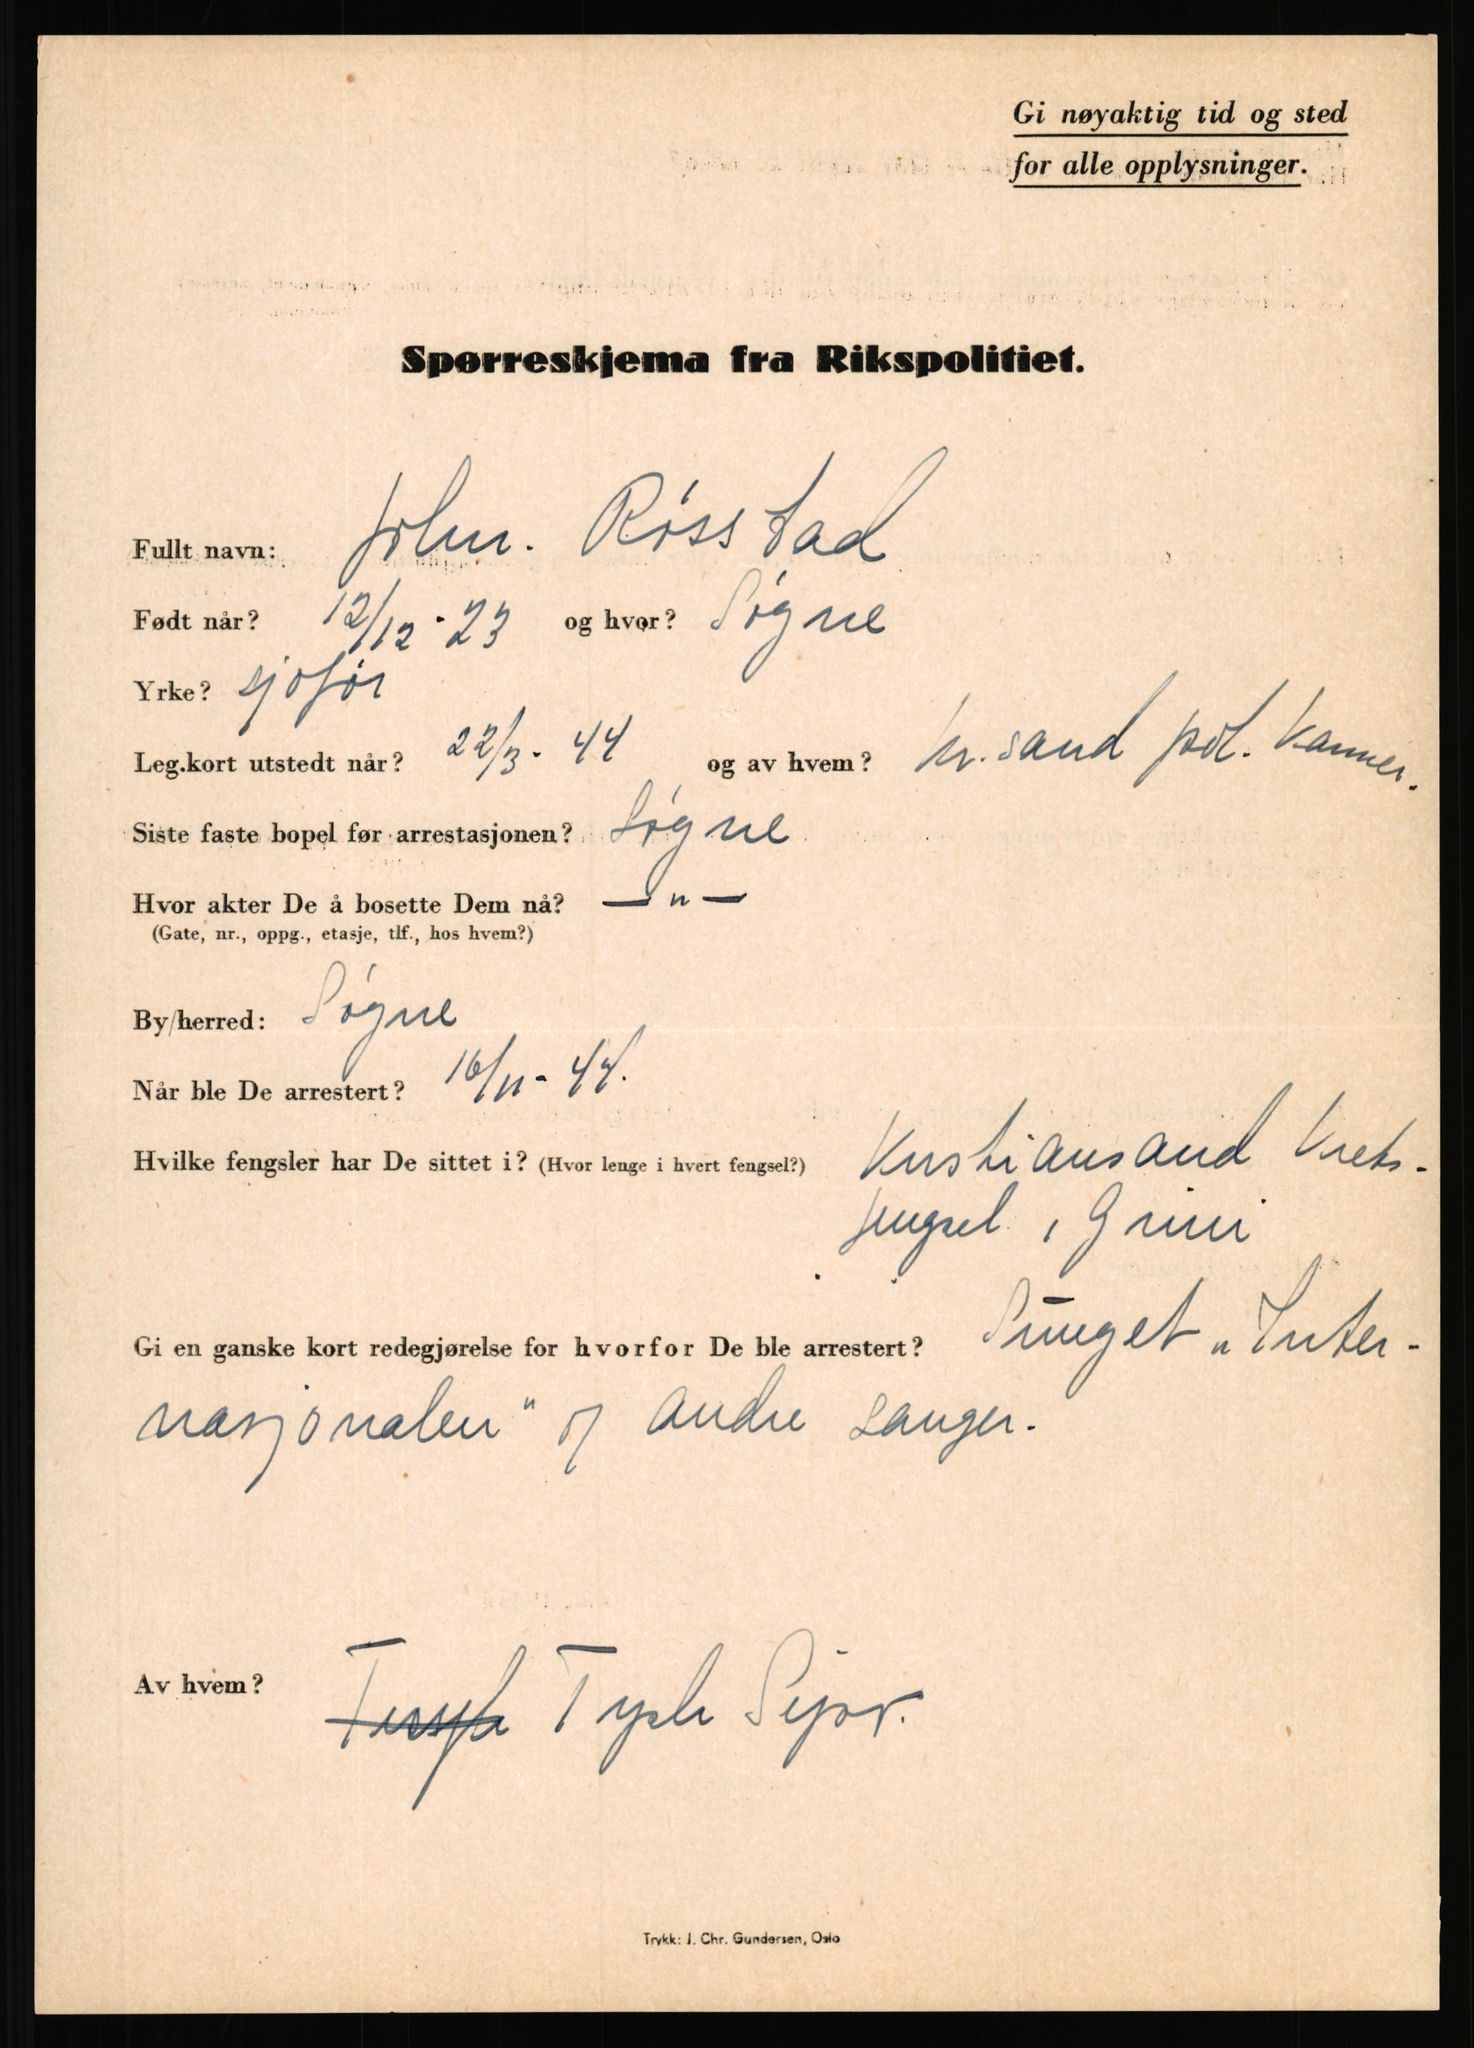 Gi nøyaktig tid og sted
for alle opplysninger.
Spørreskjema fra Rikspolitiet.
Fullt navn: John. Røsstad
Født når? 12/12-23 og hvor? Søgne
Yrke? sjofør
Leg.kort utstedt når? 22/3-44 og av hvem? Kr.sand pol. kammer.
Siste faste bopel før arrestasjonen? Søgne
Hvor akter De å bosette Dem nå? — " —
(Gate, nr., oppg., etasje, tlf., hos hvem?)
By/herred: Søgne
Når ble De arrestert? 16/11-44.
Hvilke fengsler har De sittet i? (Hvor lenge i hvert fengsel?) Kristiansand Krets-
fengsel, Grini
Gi en ganske kort redegjørelse for hvorfor De ble arrestert? Sunget „Inter-
nasjonalen" og andre sanger.
Av hvem? Tysk Sipo.
Trykk: J. Chr. Gundersen, Oslo